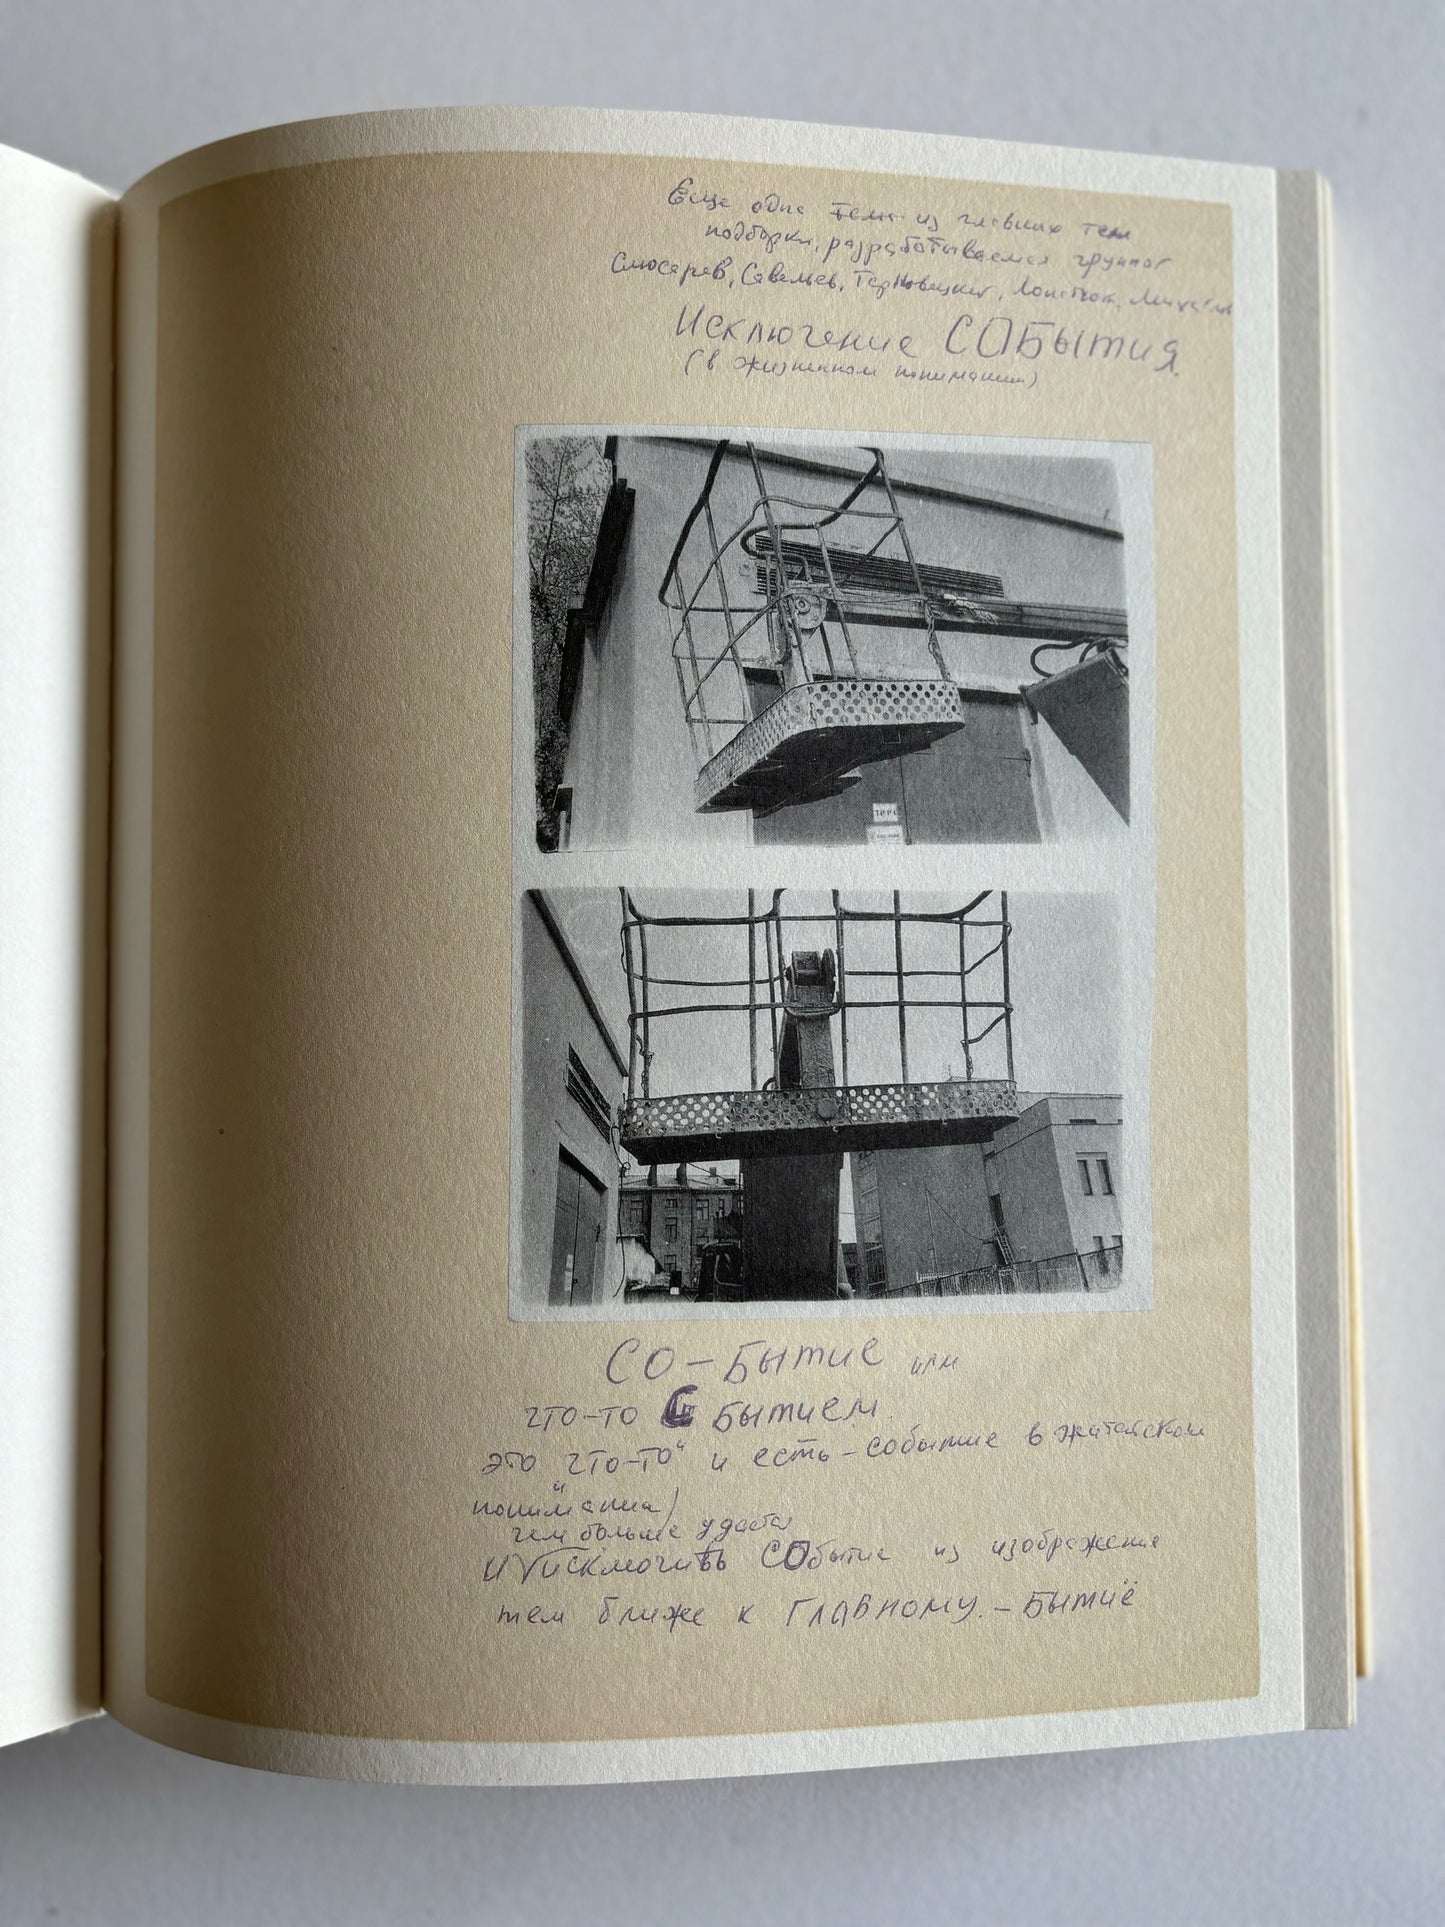 Еще одна тема из главных тем
подборки, разрабатываемая группой
Слюсарев, Савельев, Терновецкий, Лопатюк,
Исключение СОБытия.
(в жизненном понимании)
СО-Бытие или
что-то С Бытием.
это "что-то" и есть - событие в житейском
понимании)
чем больше удастся
и исключить СОбытие из изображения
тем ближе к ГЛАВНОМУ. - Бытиё